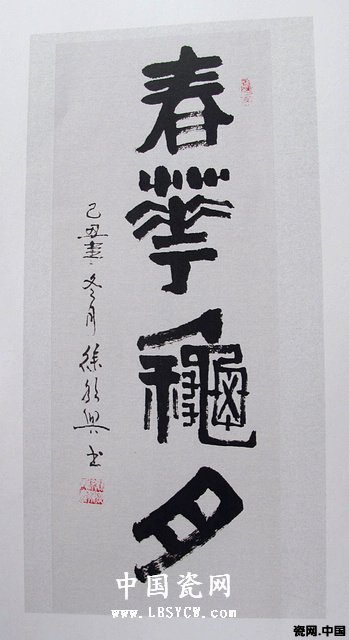 春華穐月
己丑 冬月 徐 興 书
中国瓷网
www.LBSYCW.com
瓷网.中国